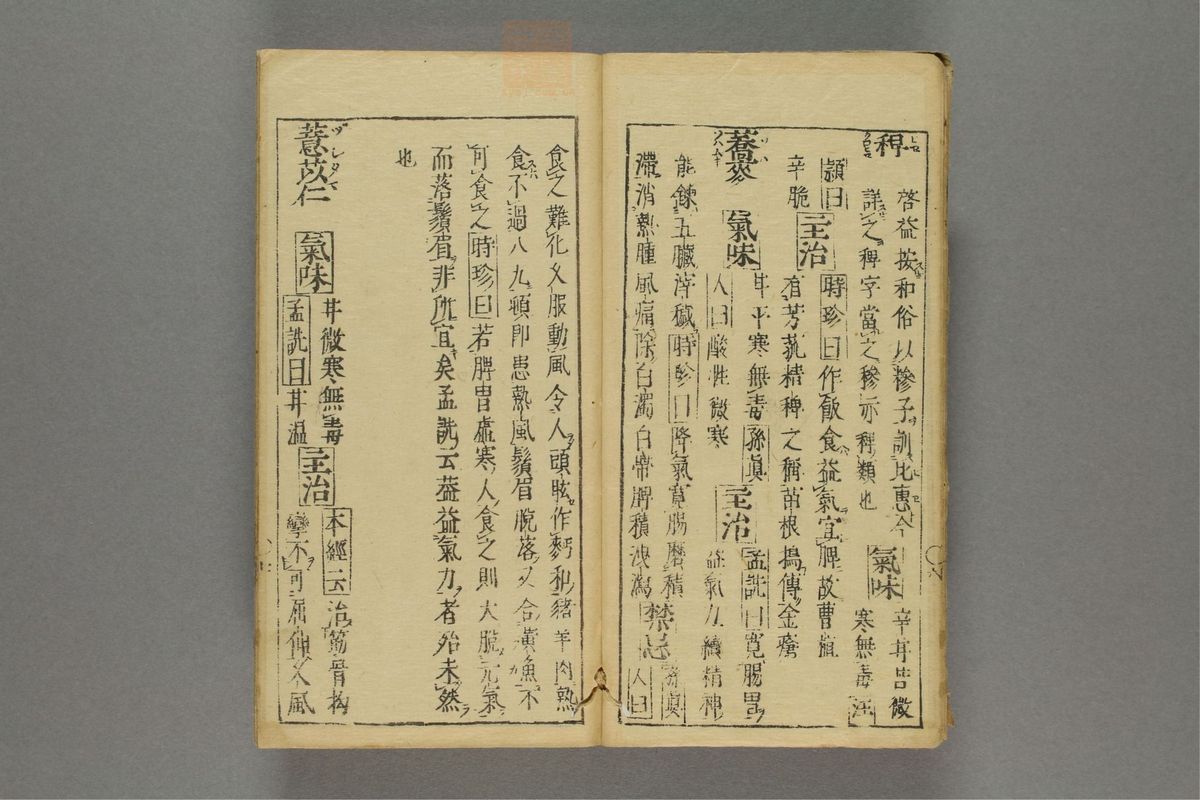 稗
啓益按和俗以穇子訓比惠今
詳之稗字當之穇亦稗類也
氣味
辛甘苦微
寒無毒 汪
頴曰
辛脆
主治
時珍曰作飯食益氣宜脾故曹植
有芳菰精稗之稱苗根搗傅金瘡
蕎麥
氣味
甘平寒無毒 孫眞
人曰酸性微寒
主治
孟詵曰寛腸胃
益氣力續精神
能錬五臟滓穢時珍曰降氣寛腸磨積
滯消熱腫風痛除白濁白帶脾積洩瀉禁忌
孫眞
人曰
食之難化久服動風令人頭眩作麪和猪羊肉熟
食不過八九頓即患熱風鬚眉脫落又合黃魚不
可食之時珍曰若脾胃虛寒人食之則大脫元氣
而落鬚眉非所宜矣孟詵云益氣力者殆未然
也
薏苡仁
ヅシタマ
氣味
甘微寒無毒
孟詵曰甘溫
主治
本經云治筋骨拘
攣不可屈伸久風